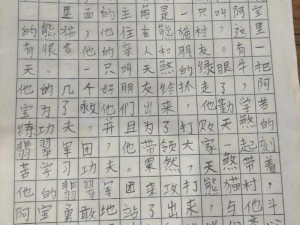 里面的主角是一只叫阿宝
的熊猫，他住在熊猫村，这里
有很多他的亲人和朋友。有一
天，一只叫天煞的绿眼牛把
他的几个好朋友给抓走了，阿
宝为了救他们出来，他勤学苦
练功夫，并且为了打败天煞的
翡翠军团，他带领大家一起刻
苦学习功夫。果然，天煞带着
他的翡翠军团来攻打熊猫村，
阿宝勇敢地站了出来，与他斗